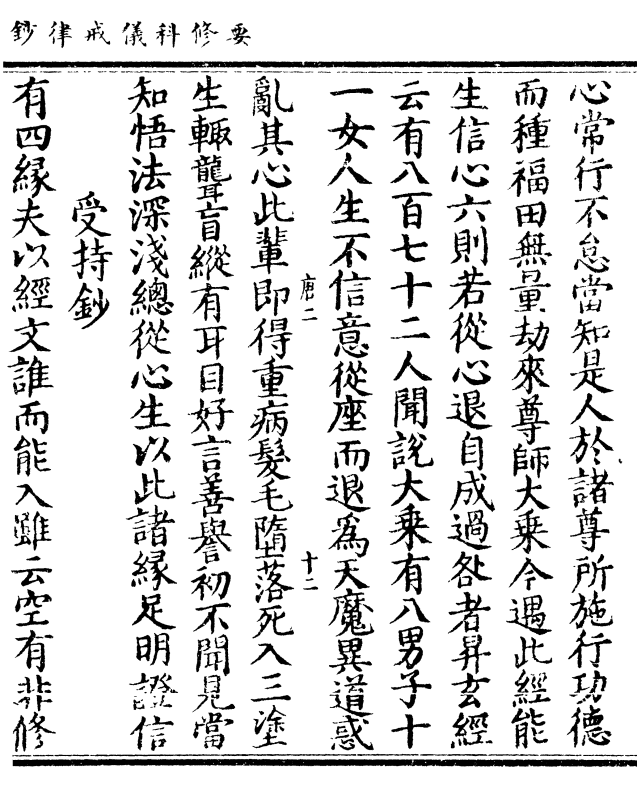 要修科儀戒律鈔
心常行不怠當知是人於諸尊所施行功德
而種福田無量劫來尊師大乗今遇此經能
生信心六則若從心退自成過咎者昇玄經
云有八百七十二人聞說大乗有八男子十
一女人生不信意從座而退為天魔異道惑
唐二
十二
亂其心此輩即得重病髮毛墮落死入三塗
生輙聾盲縱有耳目好言善譽初不聞見當
知悟法深淺總從心生以此諸緣足明證信
受持鈔
有四緣夫以經文誰而能入雖云空有非修